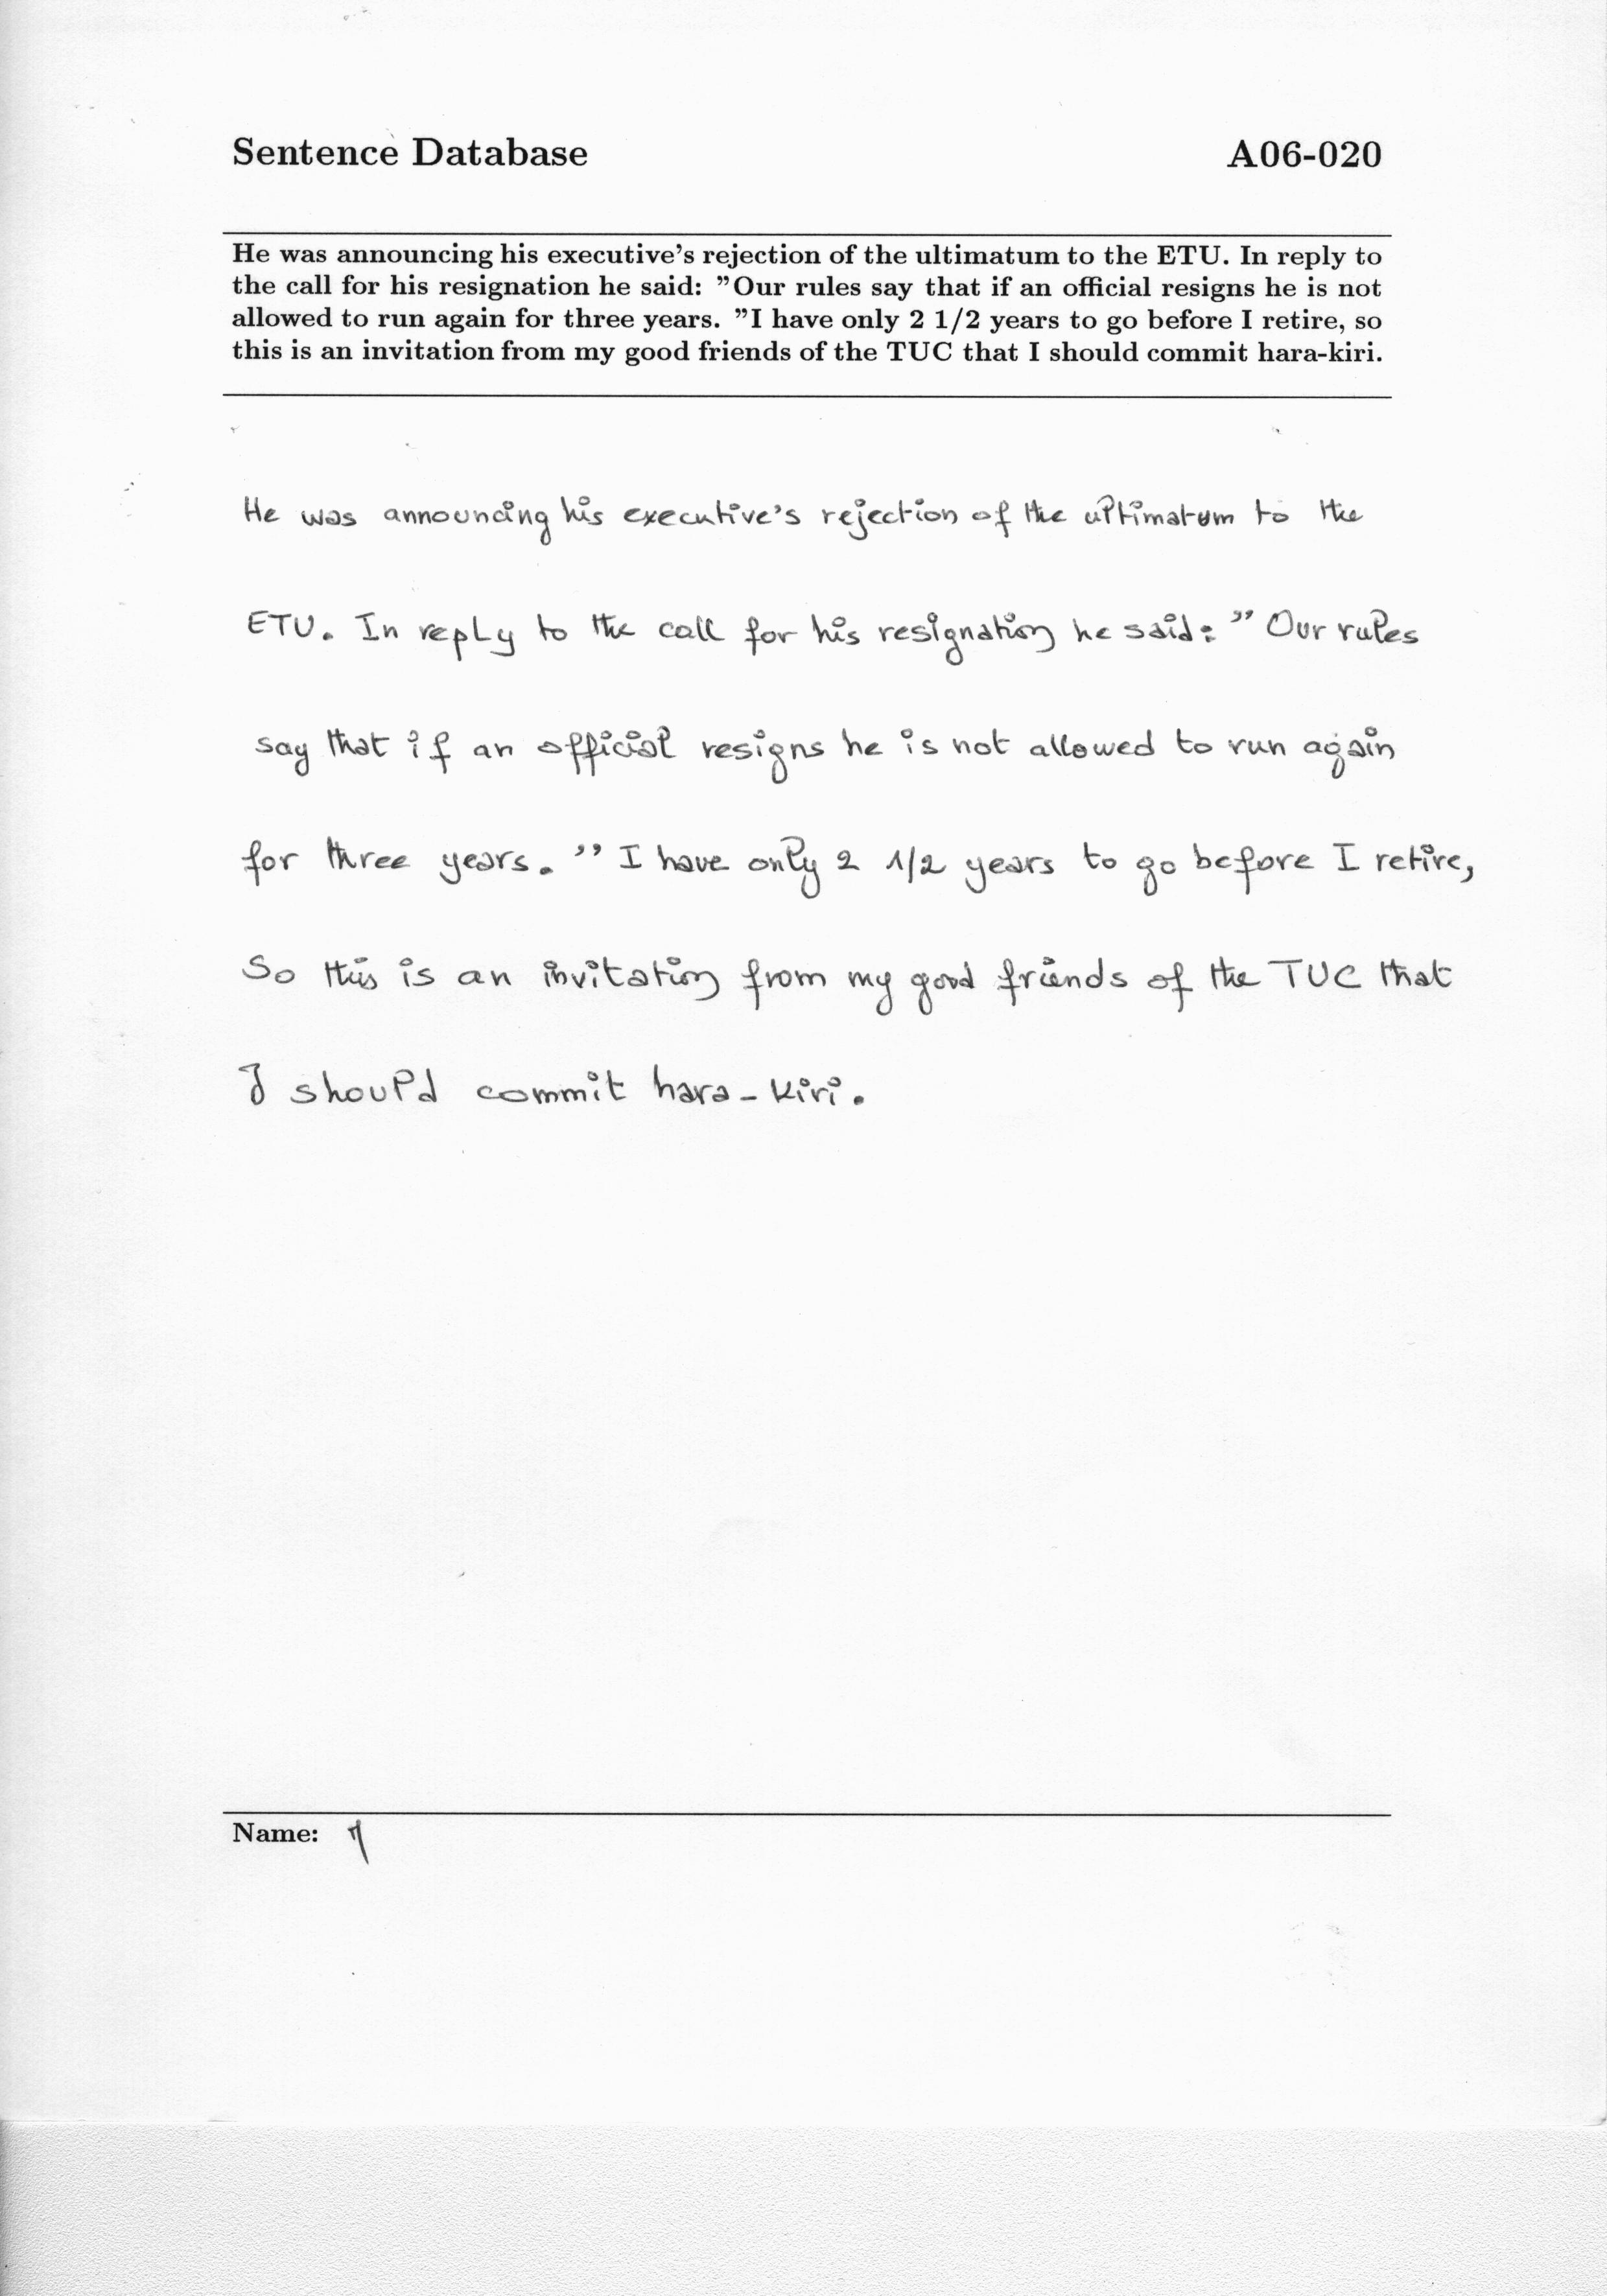 Sentence Database A06-020
He was announcing his executive's rejection of the ultimatum to the ETU. In reply to
the call for his resignation he said: ”Our rules say that if an official resigns he is not
allowed to run again for three years. ”I have only 2 1/2 years to go before I retire, so
this is an invitation from my good friends of the TUC that I should commit hara-kiri.
He was announcing his executive's rejection of the ultimatum to the
ETU. In reply to the call for his resignation he said: ” Our rules
say that if an official resigns he is not allowed to run again
for three years. ” I have only 2 1/2 years to go before I retire,
So this is an invitation from my good friends of the TUC that
I should commit hara-kiri.
Name: